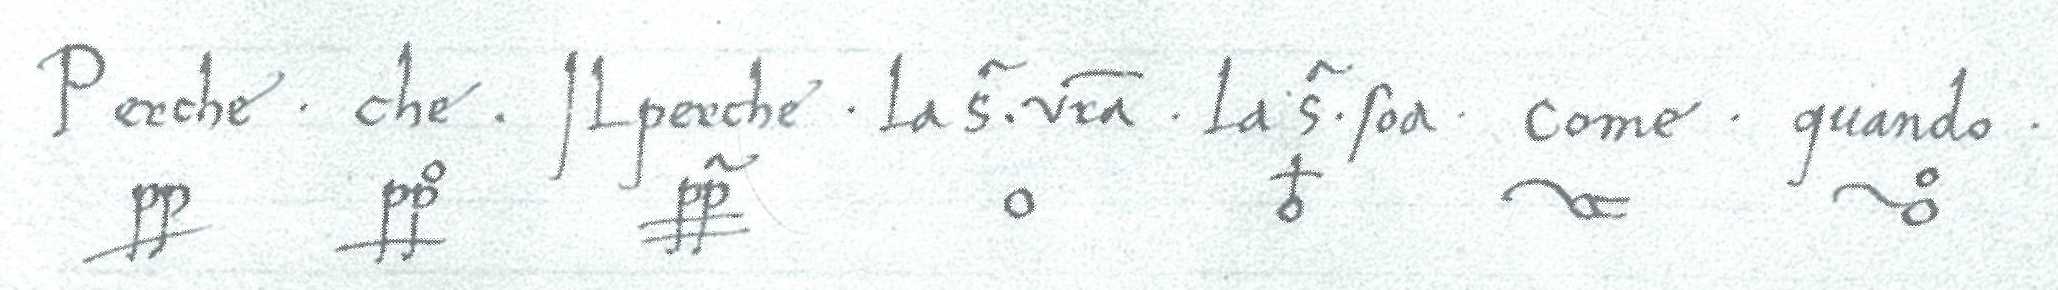 Perche · che · ILperche · La s̃. vr̃a · La s̃. soa · come · quando ·
pp pp° pp̃ o